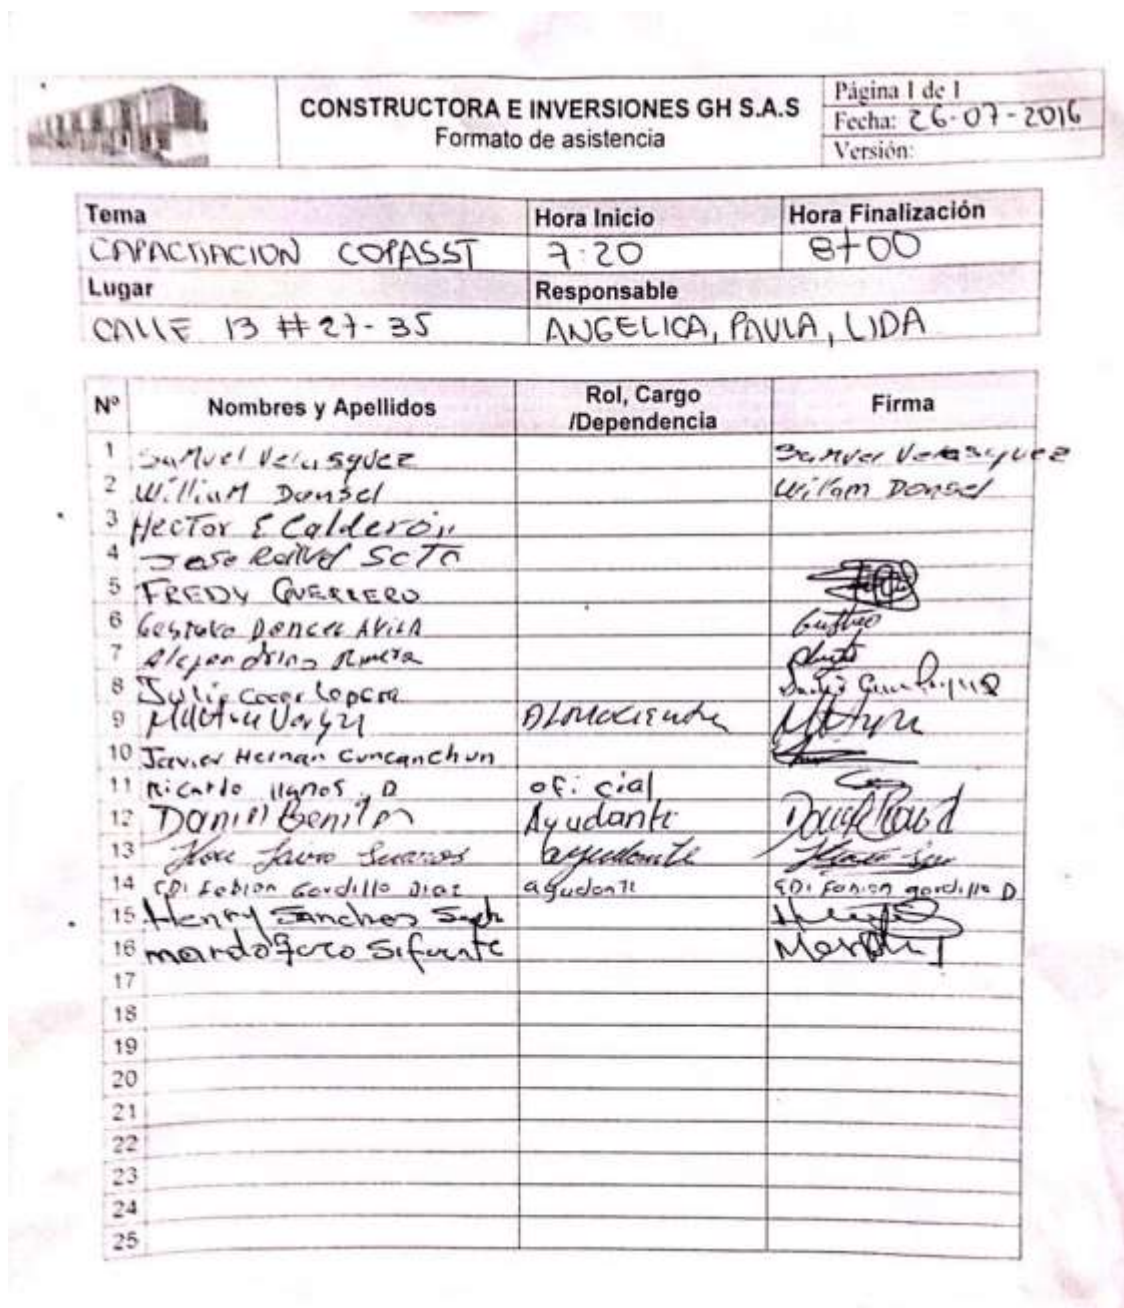 CONSTRUCTORA E INVERSIONES GH S.A.S
Formato de asistencia
Página 1 de 1
Fecha: 26-07-2016
Versión:
Tema Hora Inicio Hora Finalización
CAPACITACION COPASST 7:20 8+00
Lugar Responsable
CALLE 13 #27-35 ANGELICA, PAULA, LIDA
Nº Nombres y Apellidos Rol, Cargo /Dependencia Firma
1 Samuel Velasquez Samuel Velasquez
2 William Donsel Wiliam Donsel
3 Hector E Calderón
4 Jose
5 FREDY GUERRERO
6 Gustavo Doncel AVILA Gustavo
7 Alejandrino Rivera
8 Julio
9 Vargas
10 Javier Hernan Cuncanchun
11 Ricardo llanos D oficial
12 Daniel Benito Ayudante
13 Jose ayudante
14 EDi Fabian Gordillo Diaz ayudante EDi Fabian gordillo D
15 Henry Sanchez
16 mardoqueo Sifuente
17
18
19
20
21
22
23
24
25